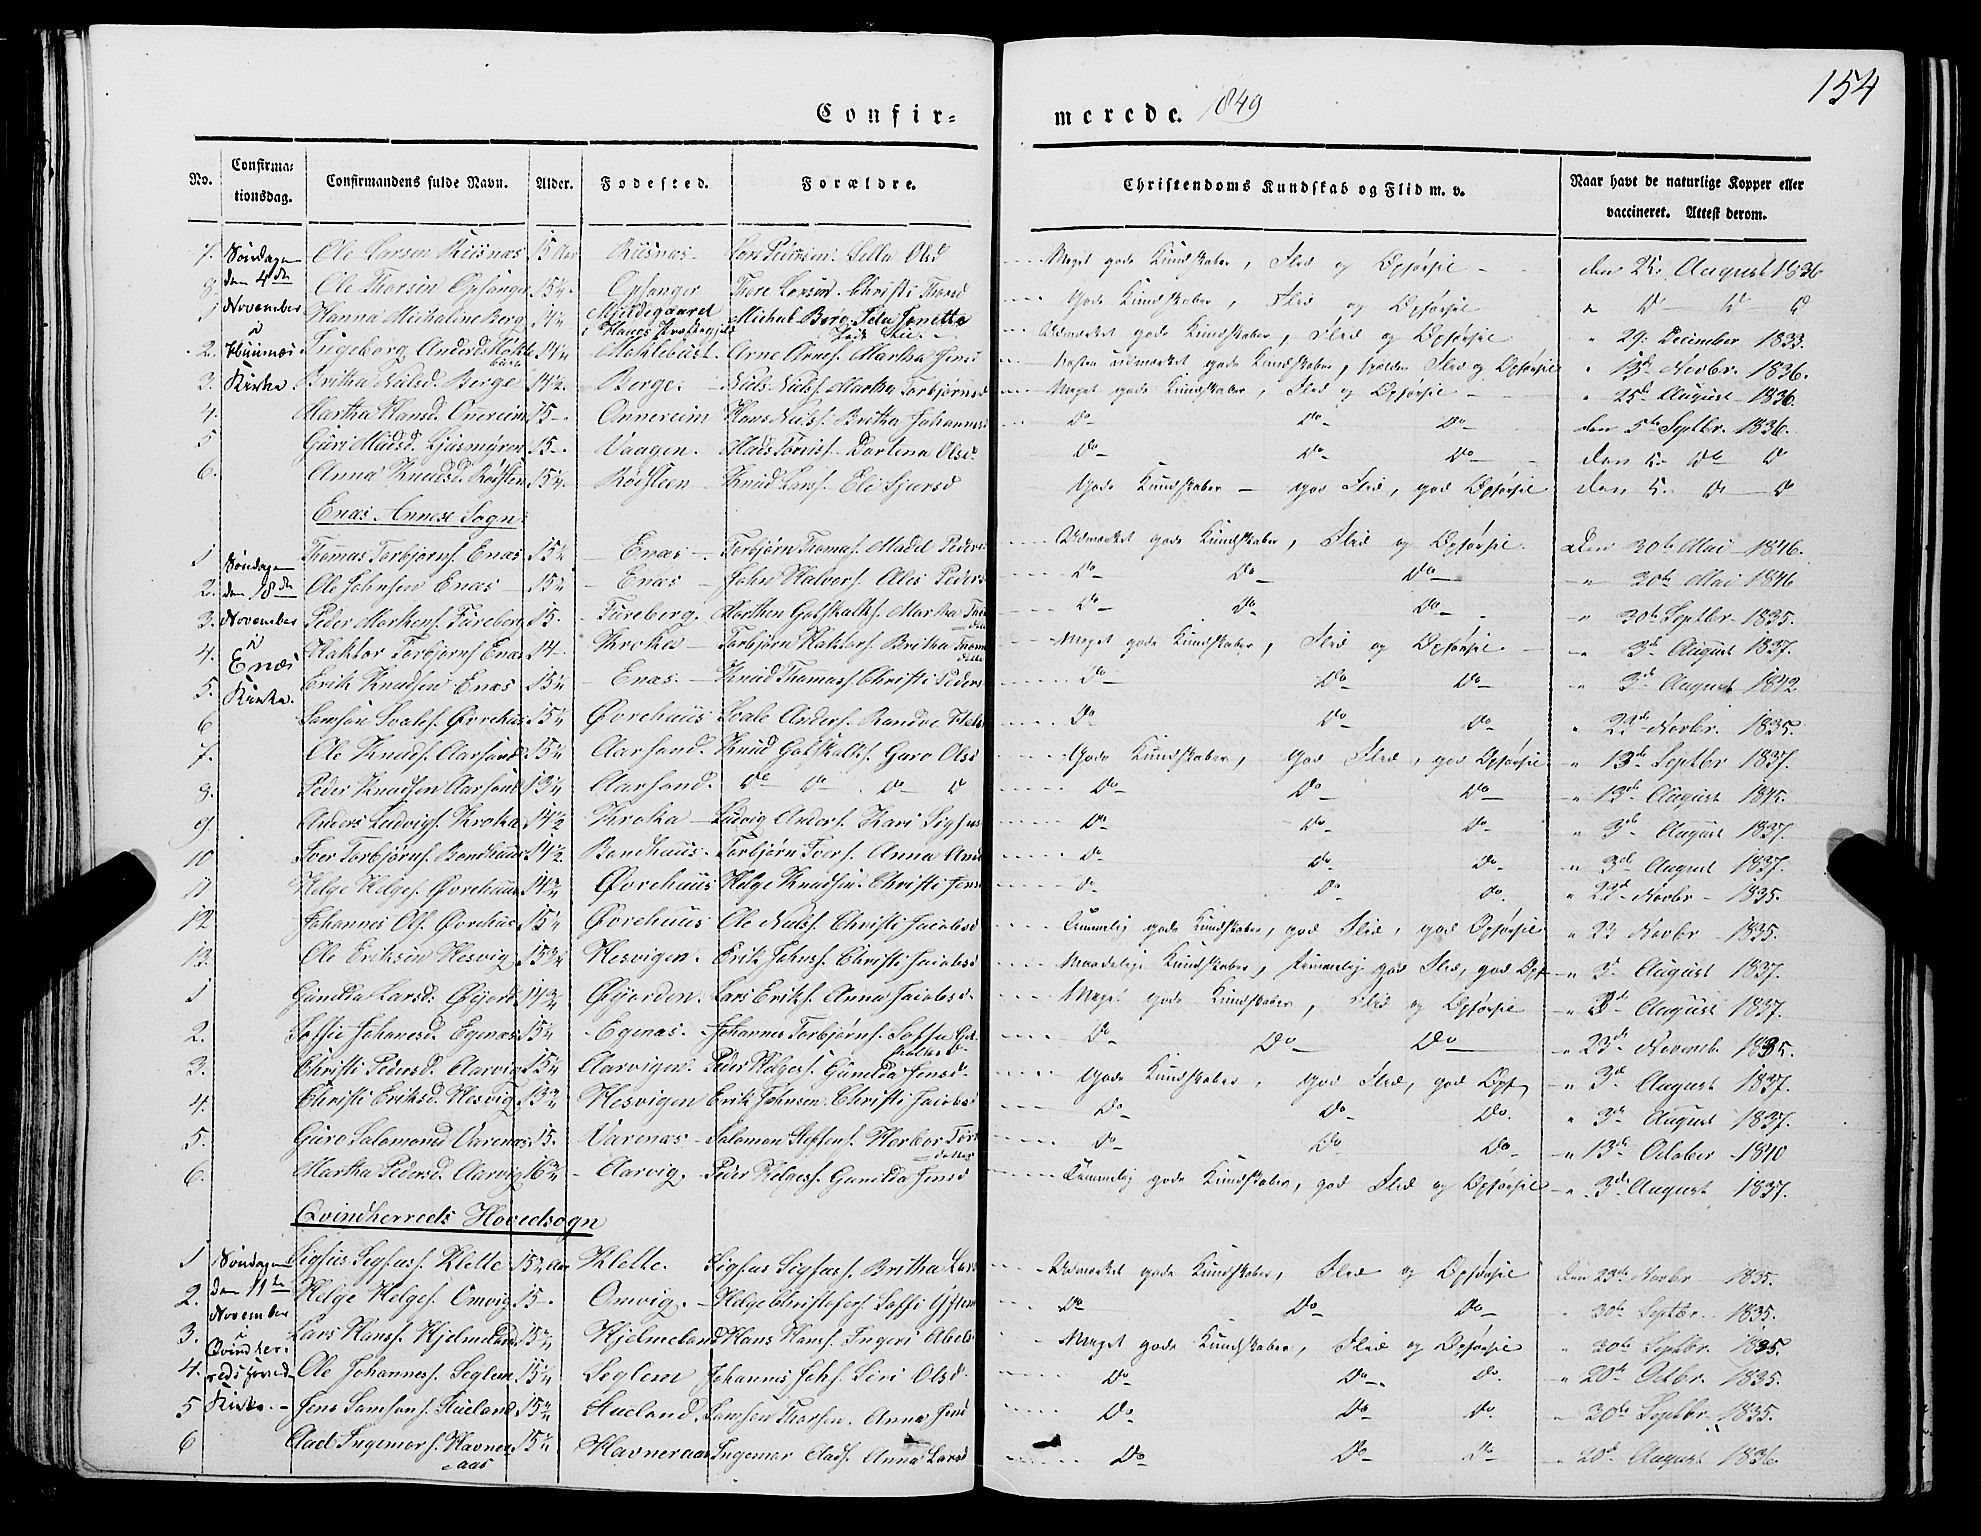 154
Confirmerede. 1849
No. Confirmationsdag. Confirmandens fulde Navn. Alder. Fodested. Forældre. Christendoms Kundskab og Flid m. v. Naar havt de naturlige Kopper eller vaccineret. Attest derom.
7. Søndagen Ole Larsen Riisnæs 15 Aar Riisnæs Lars Pedersen. Olsd Meget gode Kundskaber, Flid og Opførsel den 25. August 1836
8 den 4de Ole Thorsen Opsanger 15 Opsanger Thore Larsen. Christi Thorsd Gode Kundskaber, Flid og Opførsel " D D D
1 November Hanna Michaline Berg 14 Michael Berg. Udmærket gode Kundskaber, Flid og Opførsel " 29. December 1833.
2. i Huusnæs Ingeborg Andersd. 14 Arne Arnes. Martha Jensd Næsten udmærket gode Kundskaber, Flid og Opførsel " Novbr. 1836.
3. Kirke Britha Nielsd. Berge 14½ Berge Niels Niels. Martha Torbjørnsd Meget gode Kundskaber, Flid og Opførsel " 25d August 1836.
4. Martha Hansd. Onnereim 15 Onnereim Hans Niels. Britha Johannes Do Do Do den 5te Septbr. 1836.
5 Guri Madsd. 15 Vaagen. Mads Dortina Olsd. Do Do Do den 5. Do D
6. Anna Knudsd. Rødsteen 15 Rødsteen Knud Lars. Eli Sjursd Gode Kundskaber god Flid, god Opførsel den 5. D D
Enæs Annex Sogn.
1 Søndagen Thomas Torbjørns. Enæs 15 Enæs Torbjørn Thomas. Madel Peders Udmærket gode Kundskaber, Flid og Opførsel Den 30te Mai 1846.
2. den 18de Ole Johnsen Enæs 15 Enæs John Halvors. Ales Peders Do Do Do " 30te Mai 1846
3. November Peder Mortens. Fureberg 15. Fureberg. Morthen Gotskalks. Martha Do Do Do " 30te Septbr. 1835.
4. i Enæs Haktor Torbjørns Enæs 14 Kroka Torbjørn Haktors. Britha Meget gode Kundskaber, Flid og Opførsel " 3d August 1837.
5. Kirke. Erik Knudsen Enæs 15 Enæs. Knud Thomass. Christi Peders Do Do Do " 3d August 1842
6 Samson Øvrehuus 15 Øvrehuus Anders. Do Do Do " 23d Novbr. 1835.
7. Ole Knuds. Aarsand 15 Aarsand. Knud Gotskalks. Guro Olsd Gode Kundskaber, god Flid, god Opførsel " 13d Septbr 1837.
8. Peder Knudsen Aarsand 13 Aarsand. Do Do Do D Do Do Do " 13d August 1845.
9. Anders Ludvigs. Kroka 14½ Kroka Ludvig Anders. Kari Do Do Do " 3d August 1837.
10 Iver Torbjørns. Bondhuus 14½ Bondhuus. Torbjørn Ivers. Anna Do Do Do " 3d August 1837.
11 Helge Helges. Øvrehuus 14 Øvrehuus Helge Knudsen. Christi Jens Do Do Do " 23d Novbr 1835.
12 Johannes Ols. Øvrehus 15 Øvrehuus Ole Niels. Christi Jacobsd Temmelig gode Kundskaber, god Flid, god Opførsel " 23 Novbr 1835.
13. Ole Eriksen Hesvig 15¾ Hesvigen. Erik Johns. Christi Jacobsd Maadelige Kundskaber, temmelig god Flid, god Opf. " 3d August 1837.
1 Gunilda Larsd. 14¾ Lars Eriks. Anna Jacobsd. Meget gode Kundskaber, Flid og Opførsel " 3d August 1837.
2. Johanesd. Egenæs 15 Egenæs. Johannes Torbjørns. Do Do Do " 23d Novemb. 1835.
3. Christi Pedersd. Aarvig 15 Aarvigen. Peder Helges. Gunilda Jensd. Gode Kundskaber, god Flid, god Opf. " 3d August 1837.
4. Christi Eriksd. Hesvig 13¾ Hesvigen Erik Johnsen. Christi Jacobsd Do Do Do. " 3d August 1837.
5. Guro Salomonsd Varenæs 15. Varenæs Salomon Steffens. Do Do Do " 13d October 1840
6. Martha Pedersd. Aarvig 16¾ Aarvig. Peder Helges. Gunilda Jensd Temmelig gode Kundskaber, god Flid og Opførsel " 3d August 1837.
Qvindherreds Hovedsogn
1 Søndagen Sigfus Sigfuss. Klette 15 Aar Klette. Sigfus Sigfuss. Britha Lars Udmærket gode Kundskaber, Flid og Opførsel Den 23de Novbr 1835.
2. den 11te Helge Helges. Omvig 15 Omvig. Helge Christofers. Do Do Do " 30te Septbr. 1835.
3. November Lars Hans. Hjelmeland 15 Hjelmeland Hans Hans. Ingeri Abels Meget gode Kundskaber, Flid og Opførsel " 30te Septbr. 1835.
4. i Qvindherreds Hoved Ole Johannes. Seglem 15 Seglem Johannes Joh. Siri Olsd. Do Do Do. " 20de Octbr. 1835.
5 Kirke. Jens Samsons. 15 Samson Thorsen. Anna Jens Do Do Do. " 30te Septbr. 1835.
6 Aad Ingemars. Havneraas 15 Havneraas Ingemar Aads. Anna Larsd Do Do Do " 20d August 1836.